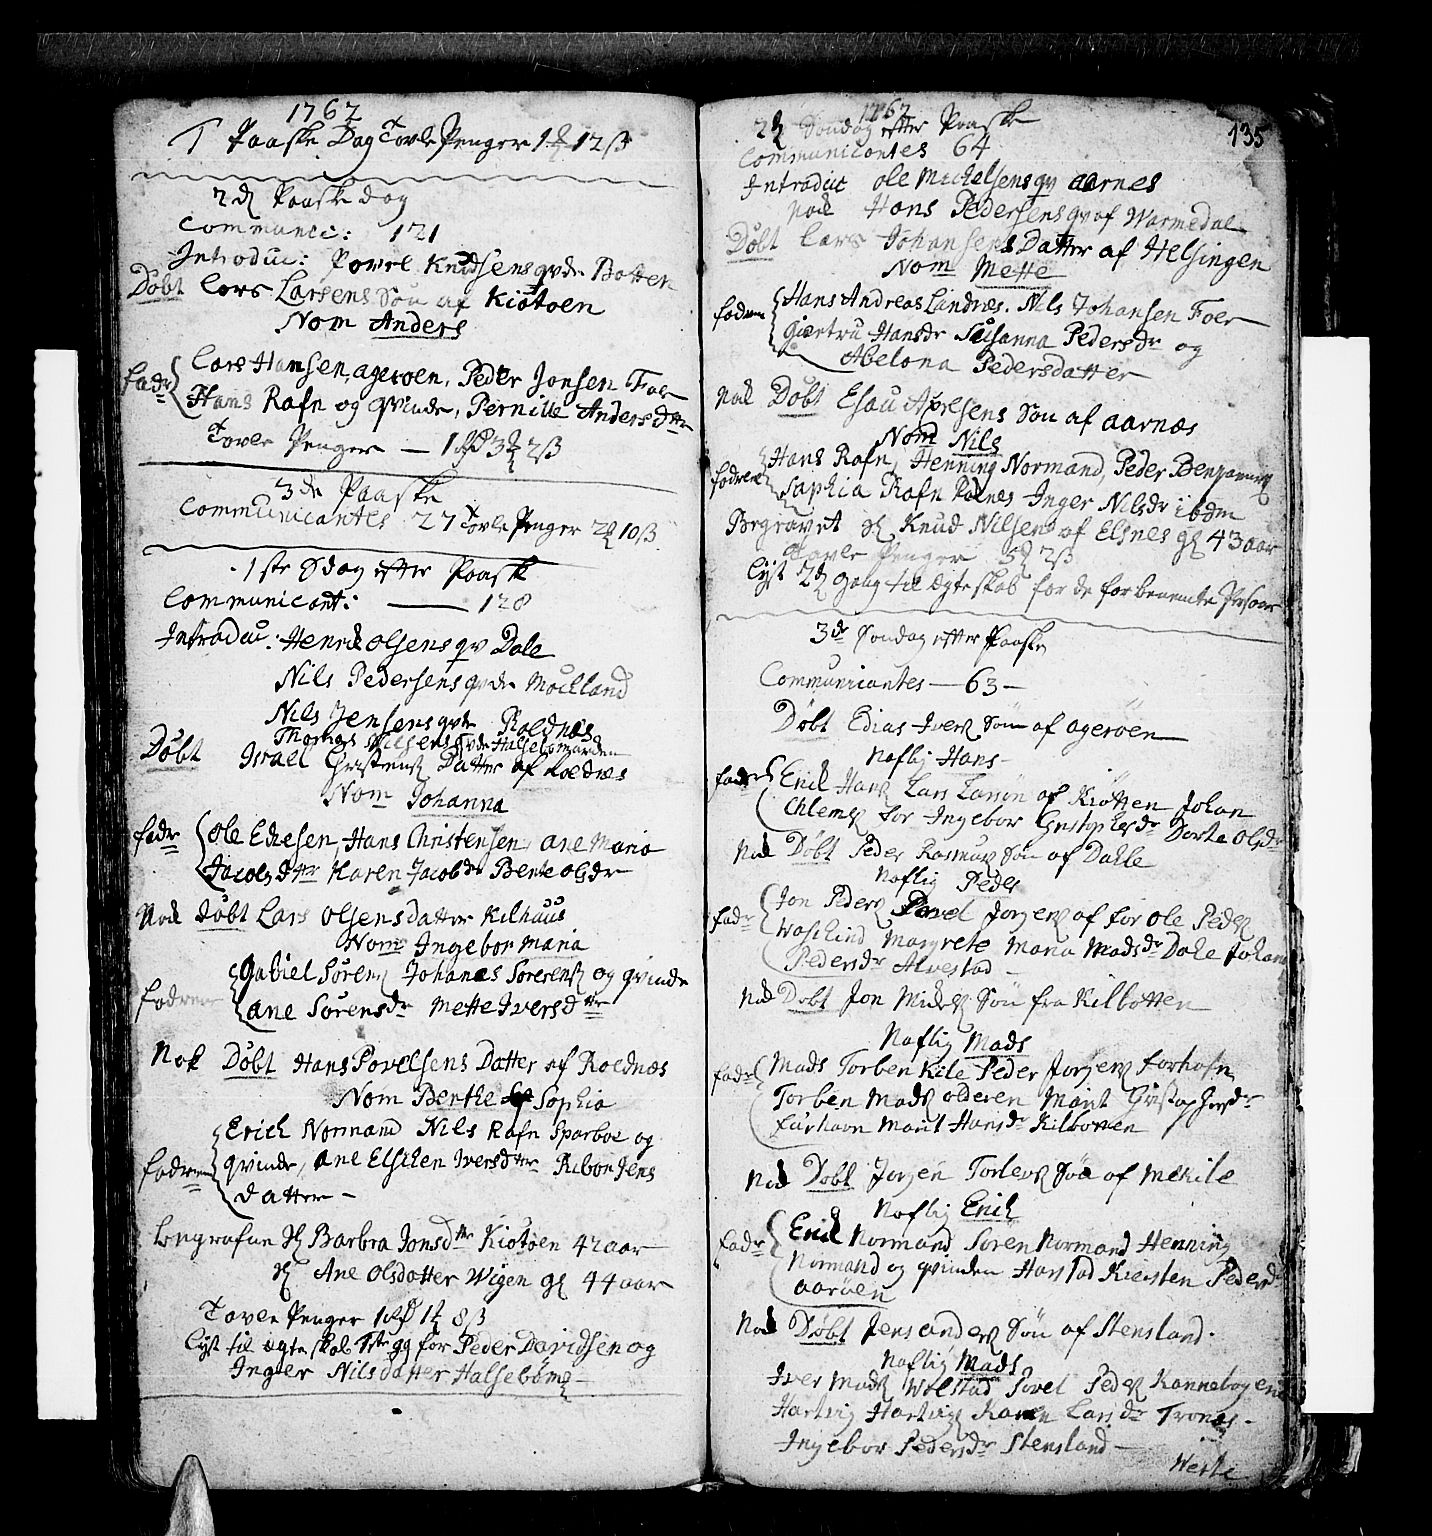 1762
1 Paaske Dag Tavle Penger 1 ℥ 12 ß
2d Paaske dag
Communic: 121
Introduc: Povel Knudsens qvde Botten
Döbt Lars Larsens Sön af Kiötöen
Nom Anders
fadr Lars Hansen, ageroen, Peder Jonsen Foer
Hans Rafn og qvinde, Pernille Andersdttr
Tavle Penger — 1 3 2 ß
3de Paaske
Communicantes 27 Tavle Penger 2 10 ß
1ste Sdag efter Paaske
Communicant: —— 128
Introduc: Henrik Olsens qv Dale
Nils Pedersens qvde Mochland
Nils Jensens qvde Roldnæs
Thomas Nilsens qvde Halsebömarden
Döbt Israel Christens Datter af Roldnæs
Nom Johanna
fadr Ole Ellesen, Hans Christensen, ane Maria
Jacobsdttr Karen Jacobdr Bente Olsdr
Nok Döbt Lars Olsens datter Kilhuus
Nom Ingebor Maria
fadrene Gabiel Sörens Johannes Sörensens og qvinde
ane Sörensdr Mette Iversdttr
Nok Döbt Hans Povelsens Datter af Roldnæs
Nom Benthe Sophia
Erich Normand Nils Rafn Sparboe og
fadrene qvinde, Ane Elsichen Iversdttr Ribor Jens
datter —
Begrafne Barbra Jonsdttr Kiötöen 42 aar
Ane Olsdatter Wigen gl 44 aar
Tavle Penger 1 1 8 ß
Lyst til ægteskab 1ste gg for Peder Davidsen og
Inger Nilsdatter Halsebömr —
135
1762
2d Söndag efter Paaske
Communicantes 64
Introduc Ole Michelsens qv aarnes
Nok Hans Pedersens qv af Warmedal
Döbt Lars Johansens Datter af Helsingen
Nom Mette
fadrene Hans Andreas Landvæs. Nils Johansen Foer
Giertru Hansdr Susanna Pedersdr og
Abelona Pedersdatter
Nok Döbt Esau Abelsens Sön af aarnæs
Nom Nils
fadrene Hans Rafn, Henning Normand, Peder Benjamins
Saphia Rafn Inger Nilsdr ibdm
Begravet Knud Nilsens af Elsnes gl 43 aar
Tavle Penger 5 2 ß
Lyst 2d gang til ægteskab for de forbenemte Personer
3de Söndag efter Paaske
Communicantes — 63 —
Döbt Edias Ivers Sön af ageröen
Naflig Hans
fadr Erich Hans Lars Larsön af Kiötten Johan
Chlems for Ingebor Cristophersdr Dorte Olsdr
Nok Döbt Peder Rasmus Sön af Dahle
Naflig Peder
fadr Jon Peders Povel Jorgens af for Ole Peders
Waslind Margrete Maria Madsdr Dahle Johan
Pedersdr Alvestad —
Nok Döbt Jon Mickels Sön fra Kilbotten
Naflig Mads
fadr Mads Torben Kile Peder Jorgens Forhafn
Torben Mads olderen Marit Cristophersdr
Furhavn Marit Hansdr Kilbotten
Nok Döbt Jorgen Torlevs Sön af Mehile
Naflig Erich
fadr Erich Normand Sören Normand Henning
Normand og qvinden Harstad Kiersten Pedersdr
aaröen
Nok Döbt Jens anders Sön af Stensland.
Naflig Mads
Iver Mads Wolstad Povel Peders Kannebogen
Hartvig Hartvigs Karen Larsdr Tronæs —
Ingebor Pedersdr Stensland —